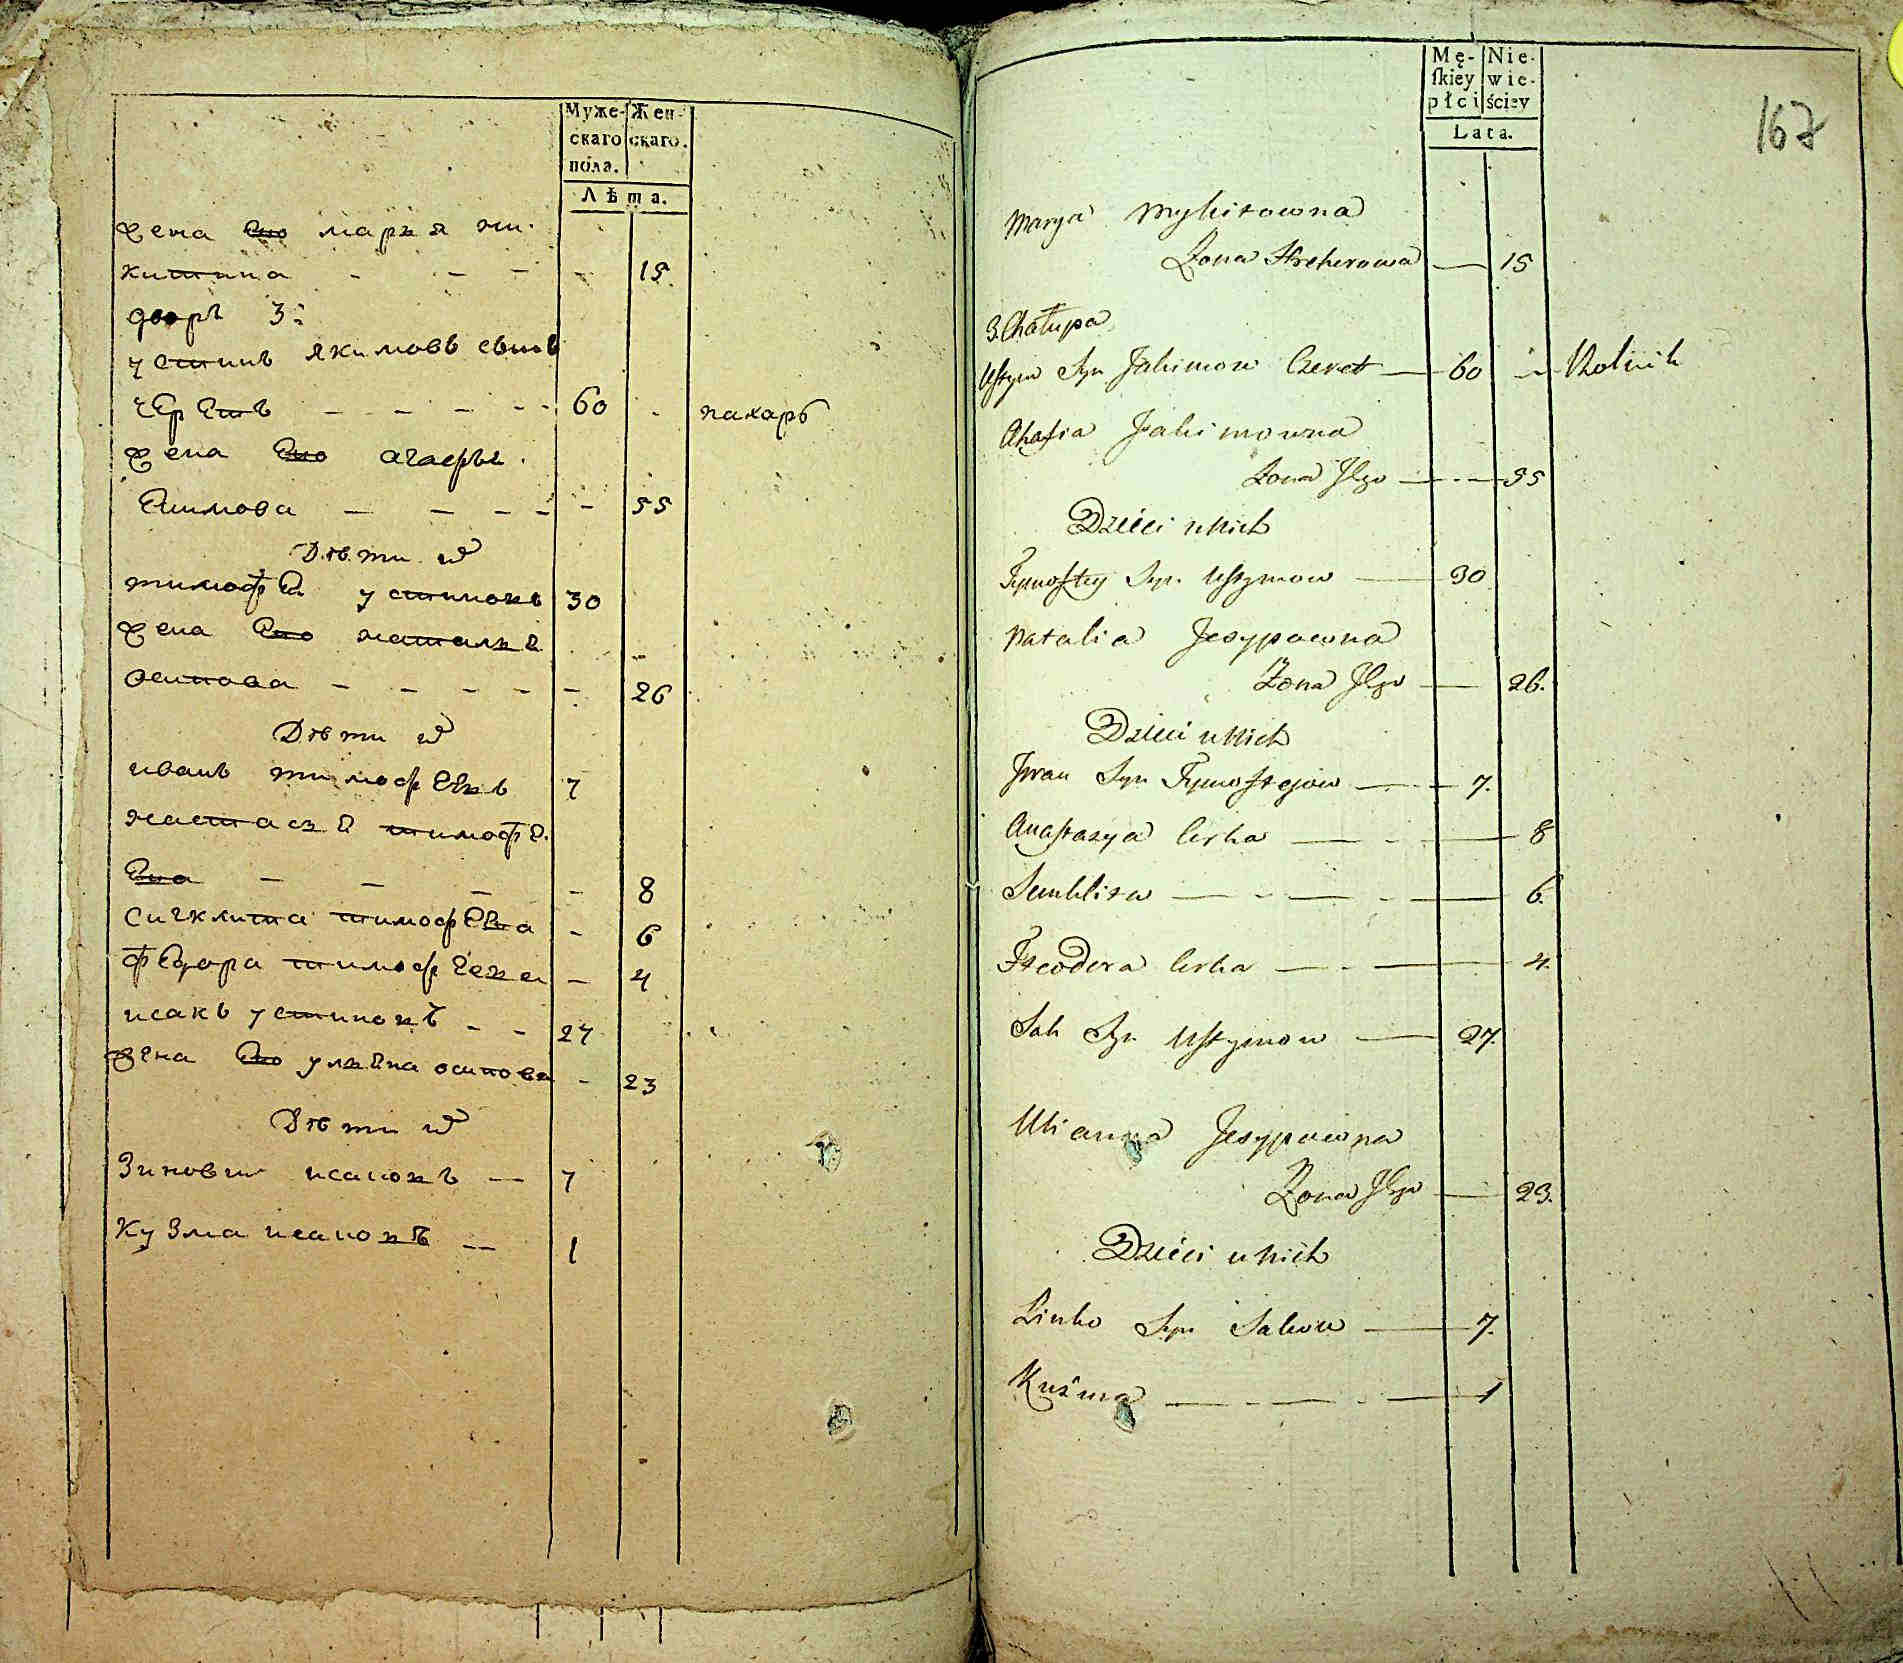 Муже-
скаго
пола.
Жен-
скаго.
Лѣта.
жена его марья ни-
китина - - - - 15
дворъ 3й
устинъ якимовъ сынъ
черетъ - - - - 60 - пахарь
жена его агафья
Ефимова - - - - - 55
Дѣти их
тимофей устиновъ 30
жена его наталья
осипова - - - - - 26
Дѣти их
иванъ тимофеевъ 7
настасья тимофе-
ева - - - - 8
сигклита тимофеева - 6
федора тимофеева - 4
исакъ устиновъ - - 27
жена его ульяна осипова - 23
Дѣти их
Зиновий исаковъ — 7
Кузма исаковъ — 1
Mę-
skiey
płci
Nie-
wie-
ściey
Lata.
167
Marya Mykitowna
Żona — 15
3. Chałupa
Ustym Syn Jakimow Czeret — 60 - Rolnik
Ahafia Jakimowna
Żona Jego — - — 55
Dzieci u Nich
Tymoftey Syn Ustymow — 30
Natalia Jesypowna
Żona Jego — 26.
Dzieci u Nich
Jwan Syn Tymoftejow — - — 7.
Anastazya Corka — - — 8
Senklita — - — - — 6.
Fteodora Corka — - — 4.
Sak Syn Ustymow — 27.
Ulianna Jesypowna
Żona Jego — 23.
Dzieci u Nich
Zinko Syn Sakow — 7.
Kuźma — - — - — 1